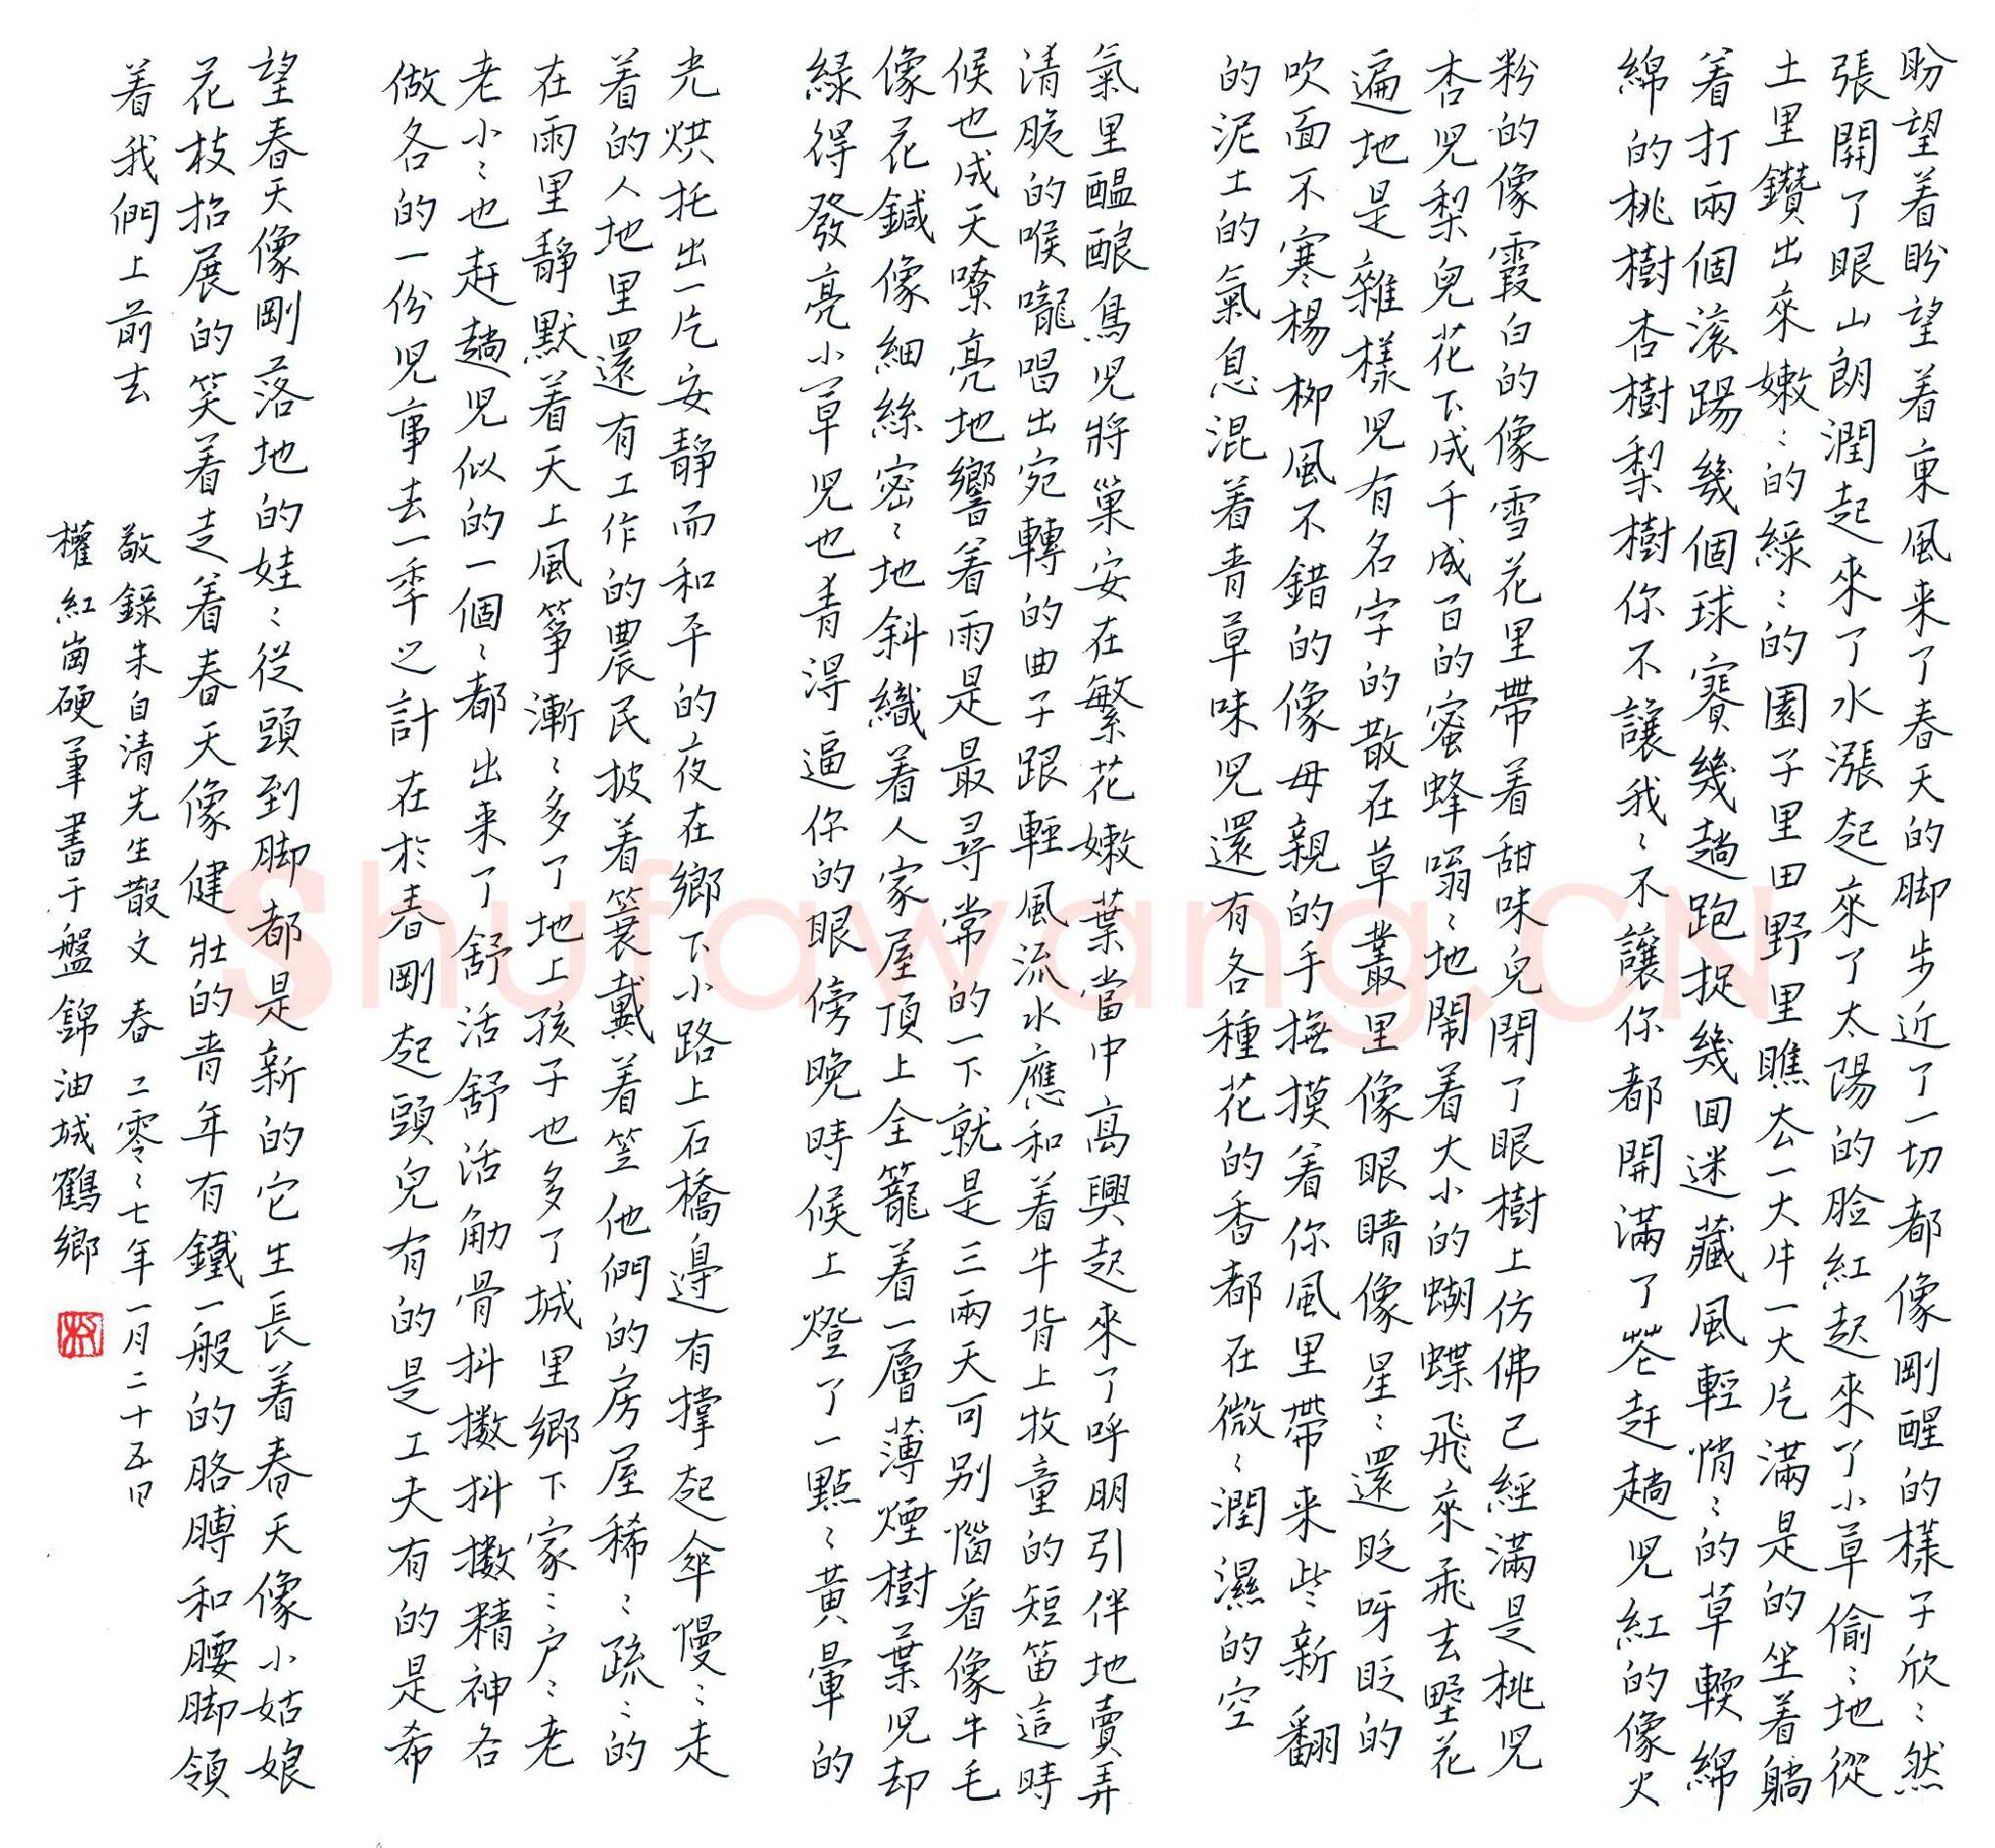 盼望着盼望着東風来了春天的脚步近了一切都像剛醒的樣子欣〻然
張開了眼山朗潤起來了水漲起來了太陽的脸紅起來了小草偷〻地從
土里鑽出來嫩〻的綠〻的園子里田野里瞧去一大片一大片滿是的坐着躺
着打兩個滚踢幾個球賽幾趟跑捉幾回迷藏風輕悄〻的草輭綿
綿的桃樹杏樹梨樹你不讓我〻不讓你都開滿了花赶趟児紅的像火
粉的像霞白的像雪花里帶着甜味兒閉了眼樹上仿佛已經滿是桃児
杏児梨兒花下成千成百的蜜蜂嗡〻地鬧着大小的蝴蝶飛來飛去野花
遍地是雜樣児有名字的散在草叢里像眼睛像星〻還眨呀眨的
吹面不寒楊柳風不錯的像母親的手撫摸着你風里帶来些新翻
的泥土的氣息混着青草味児還有各種花的香都在微〻潤濕的空
氣里醖釀鳥児將巢安在繁花嫩葉當中高興起來了呼朋引伴地賣弄
清脆的喉嚨唱出宛轉的曲子跟輕風流水應和着牛背上牧童的短笛這時
候也成天嘹亮地響着雨是最尋常的一下就是三兩天可别惱看像牛毛
像花鍼像細絲密〻地斜織着人家屋頂上全籠着一層薄煙樹葉児却
緑得發亮小草児也青得逼你的眼傍晚時候上燈了一點〻黄暈的
光烘托出一片安靜而和平的夜在鄉下小路上石橋邊有撑起傘慢〻走
着的人地里還有工作的農民披着簑戴着笠他們的房屋稀〻疏〻的
在雨里靜默着天上風箏漸〻多了地上孩子也多了城里鄉下家〻户〻老
老小〻也赶趟児似的一個〻都出来了舒活舒活觔骨抖擻抖擻精神各
做各的一份児事去一年之計在於春剛起頭兒有的是工夫有的是希
望春天像剛落地的娃〻從頭到脚都是新的它生長着春天像小姑娘
花枝招展的笑着走着春天像健壯的青年有鐵一般的胳膊和腰脚領
着我們上前去
敬錄朱自清先生散文 春 二零〻七年一月二十五日
權紅崗硬筆書于盤錦油城鶴鄉
Shufawang.CN